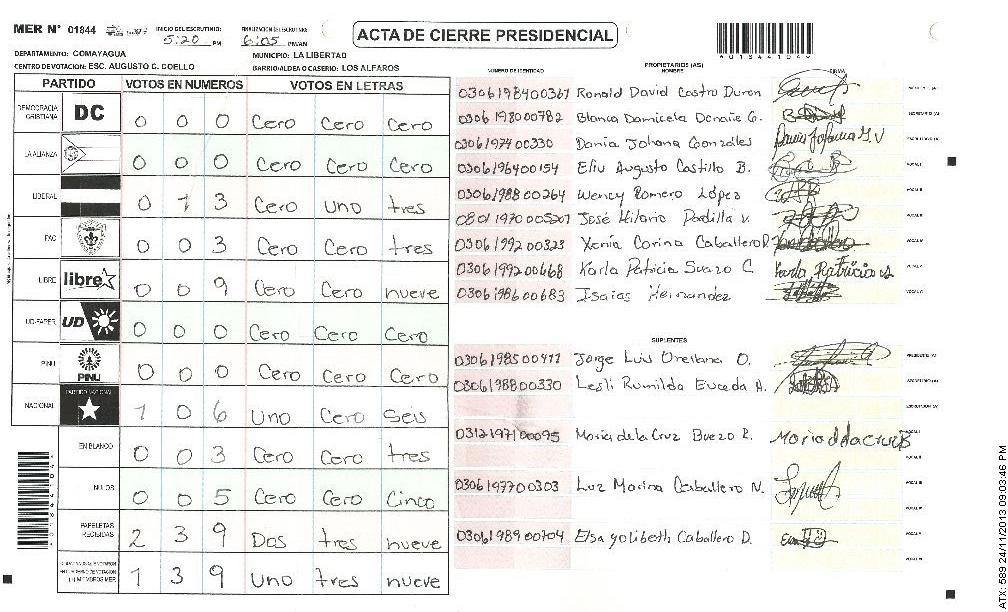 MER N° 01844 INICIO DEL ESCRUTINIO: 5:20 PM FINALIZACION DE ESCRUTINIO: 6:05 PM/AN
ACTA DE CIERRE PRESIDENCIAL
DEPARTAMENTO: COMAYAGUA MUNICIPIO: LA LIBERTAD
CENTRO DE VOTACION: ESC. AUGUSTO C. COELLO BARRIO/ALDEA O CASERIO: LOS ALFAROS
PARTIDO VOTOS EN NUMEROS VOTOS EN LETRAS
DEMOCRACIA CRISTIANA DC 0 0 0 Cero Cero Cero
LA ALIANZA 0 0 0 Cero Cero Cero
LIBERAL 0 1 3 Cero Uno tres
PAC 0 0 3 Cero Cero tres
LIBRE libre 0 0 9 Cero Cero nueve
UD-FAPER UD 0 0 0 Cero Cero Cero
PINU PINU 0 0 0 Cero Cero Cero
NACIONAL PARTIDO NACIONAL 1 0 6 Uno Cero Seis
EN BLANCO 0 0 3 Cero Cero tres
NULOS 0 0 5 Cero Cero Cinco
PAPELETAS RECIBIDAS 2 3 9 Dos tres nueve
MIEMBROS MER 1 3 9 Uno tres nueve
NUMERO DE IDENTIDAD PROPIETARIOS (AS) NOMBRE FIRMA
0306198400367 Ronald David Castro Duron
0306198000782 Blanca Damicela G.
0306197400330 Dania Johana Gonzales
0306196400154 Eliu Augusto Castillo B.
0306198800264 Wency Romero López
José Hilario Padilla V.
0306199200323 Xenia Corina Caballero R
0306199200668 Karla Patricia Suazo C
0306198600683 Isaias Hernandez
SUPLENTES
0306198500411 Jorge Luis Orellana O.
0306198800330 Lesli Rumilda Euceda A.
0312197100095 Maria de la Cruz Buezo R.
0306197700303 Luz Marina Caballero N.
0306198900704 Elsa Yolibeth Caballero D.
ATX: 589 24/11/2013 09:03:46 PM